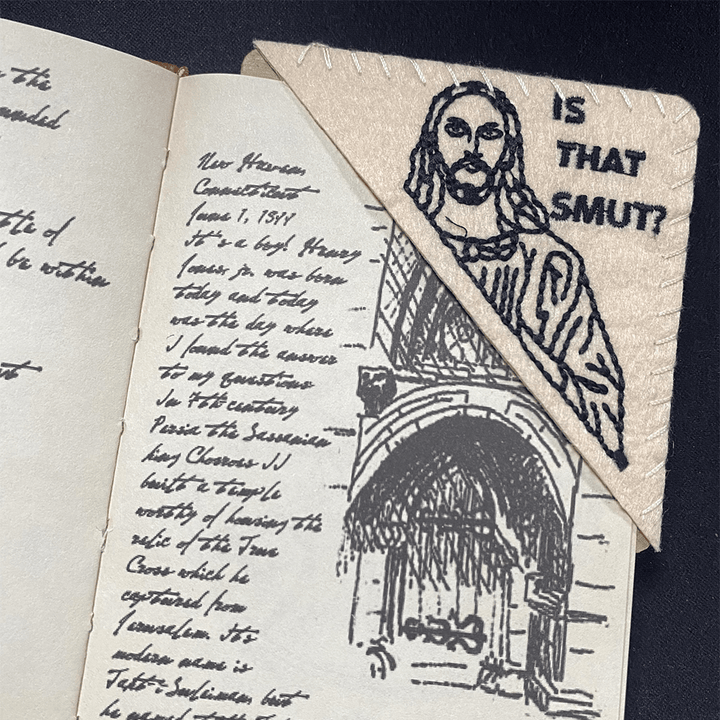 the
ounded
ttle of
d be within
New Haven
Connecticut
June 1, 1911
It's a boy! Henry
Jones jr. was born
today and today
was the day where
I found the answer
to my questions
In 7th century
Persia the Sassanian
king Chosroes II
built a temple
worthy of housing the
relic of the True
Cross which he
captured from
Jerusalem. Its
modern name is
Takt-i-Suleiman, but
he named it
IS
THAT
SMUT?